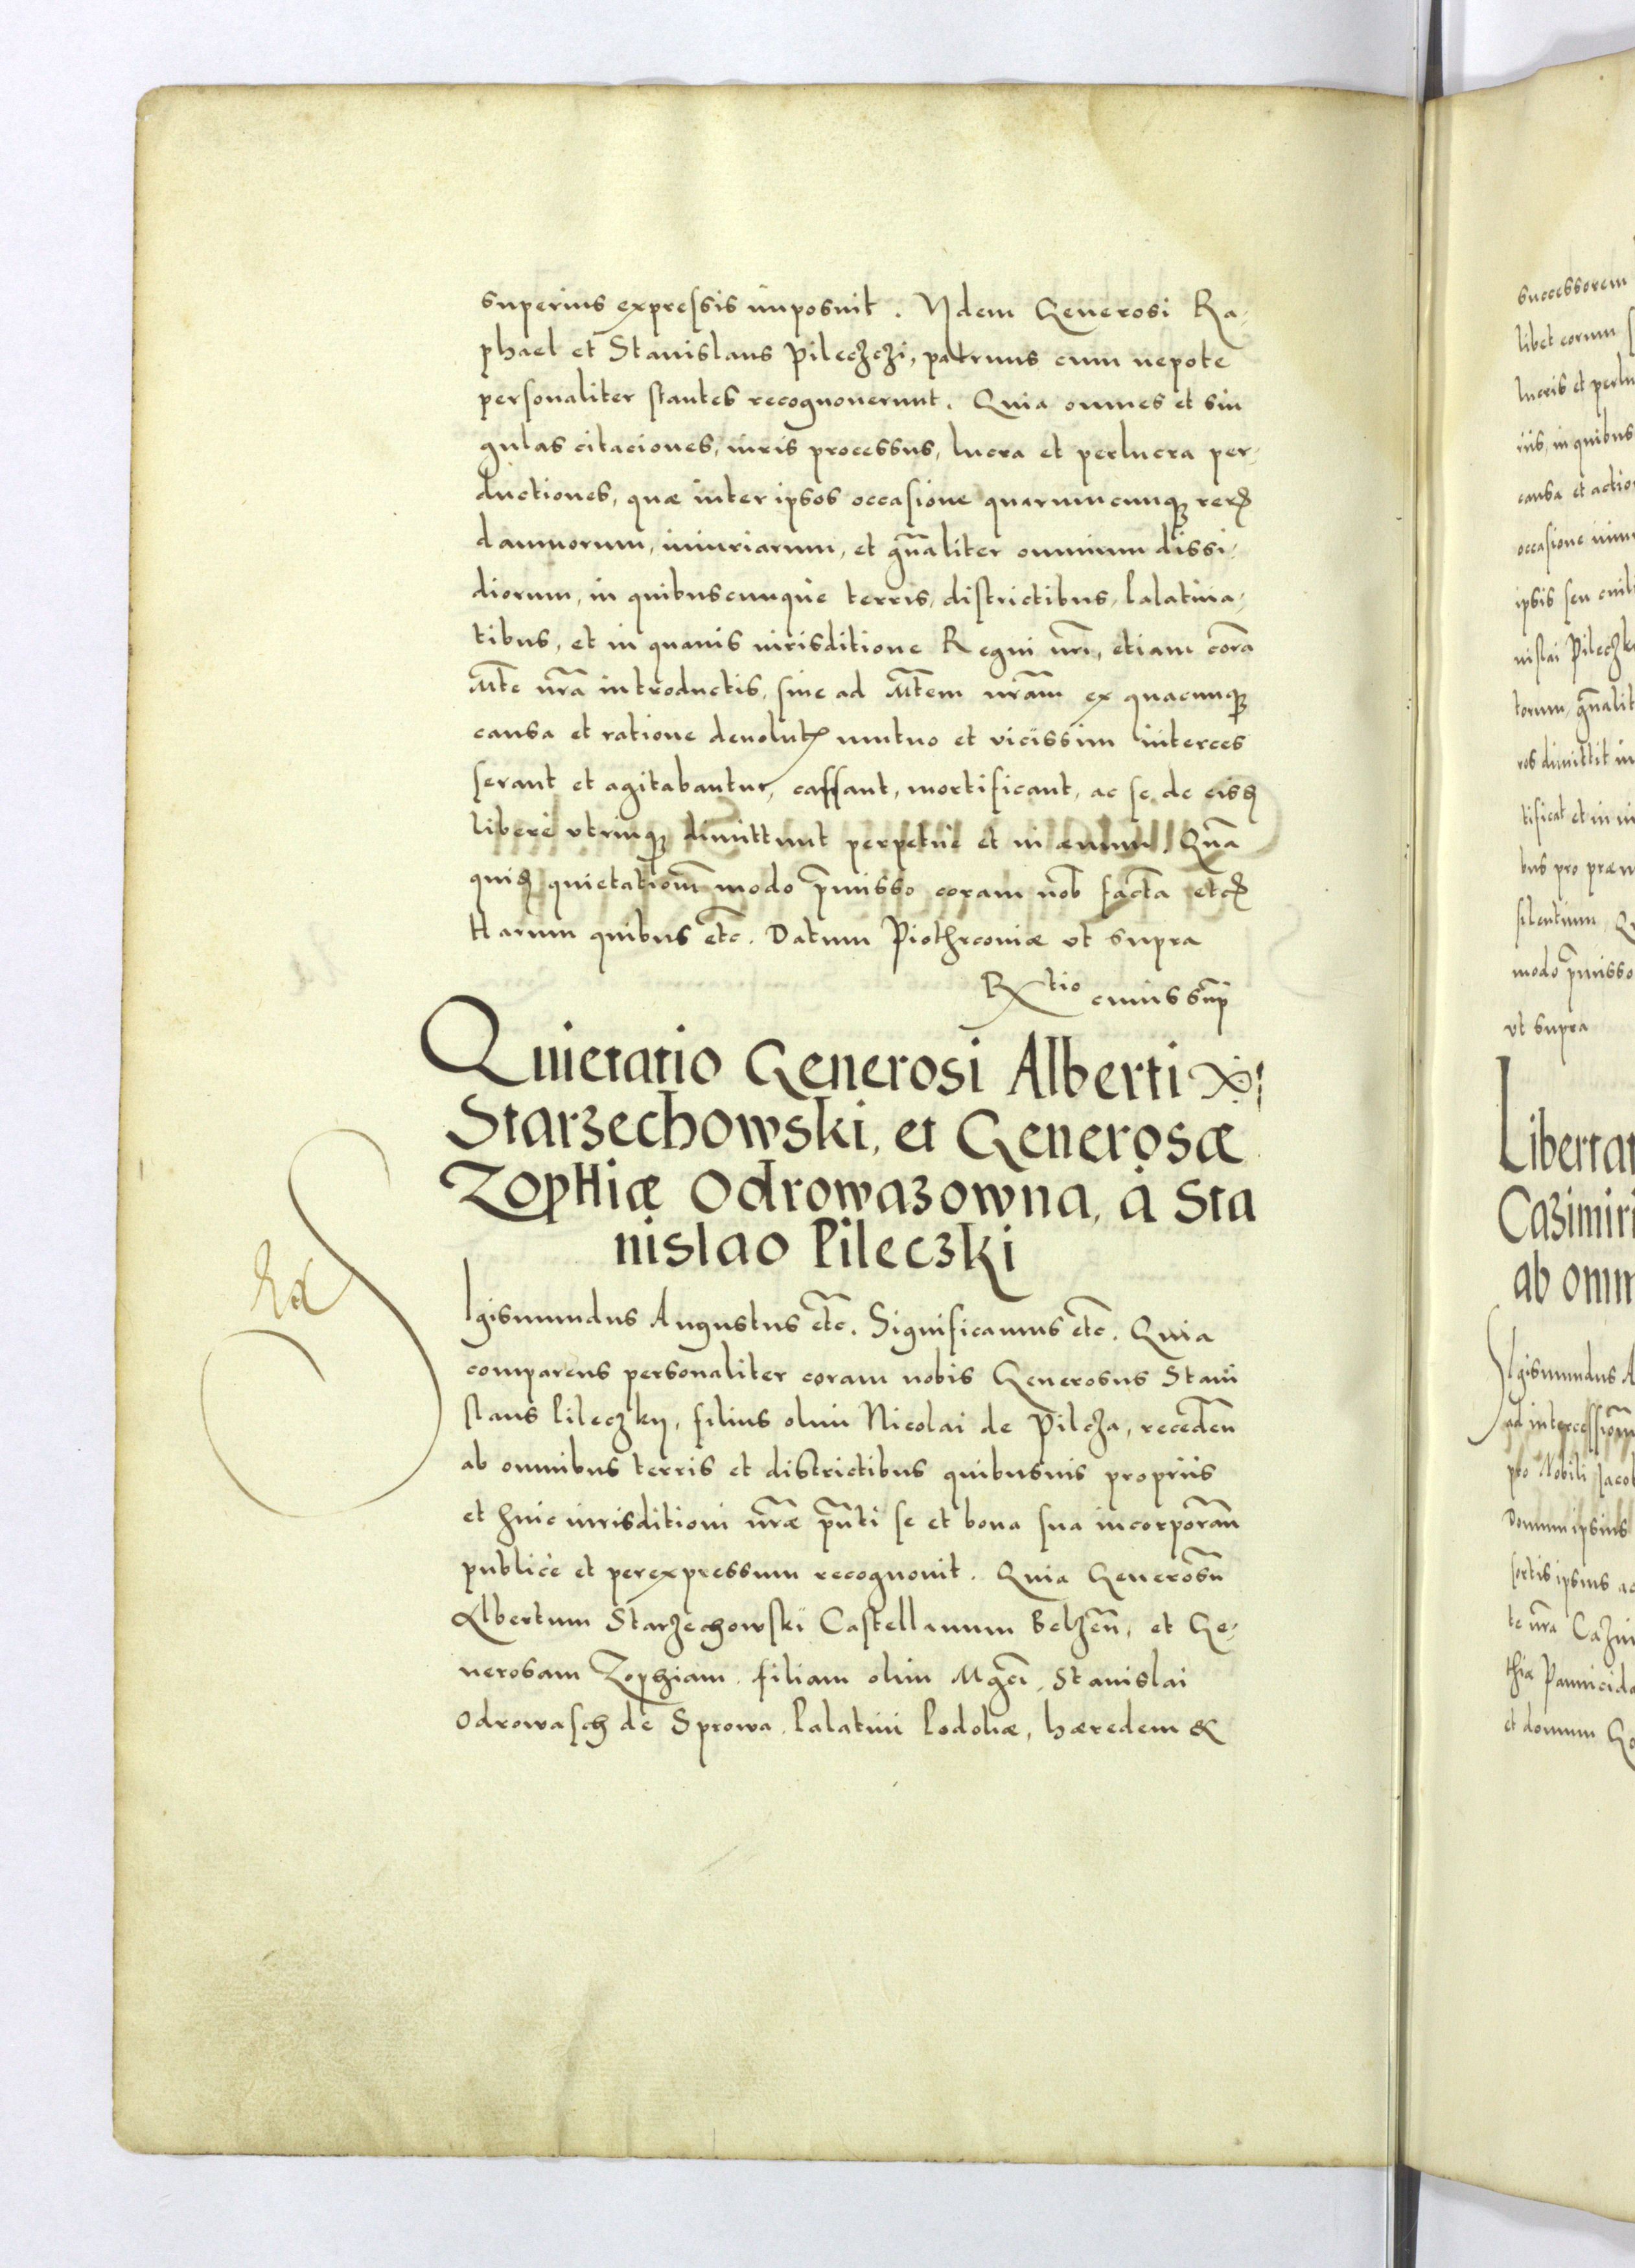 superius expressis imposuit. Ydem Generosi Ra-
phael et Stanislaus Pileczczi, patruus cum nepote
personaliter stantes recognouerunt. Quia omnes et sin
gulas citaciones, iuris processus, lucra et perlucra per-
ductiones, quæ inter ipsos occasione quarumcunqꝫ reꝝ
damnorum, iniuriarum, et gn̄aliter omnium dissi-
diorum, in quibuscunque terris, districtibus, Palatina-
tibus, et in quauis iurisditione Regni nr̄i, etiam corā
Mt̄e nr̄a introductis, siue ad Mt̄em nrām ex quacunqꝫ
causa et ratione deuolutꝭ mutuo et vicissim interces
serant et agitabantur, cassant, mortificant, ac se de eisꝗ
liberè vtrinqꝫ dimittunt perpetuè et in æuum. Quā
quiꝗ quietationem̄ modo p̄misso coram nob̄ factā etcꝭ
Harum quibus etc̄. Datum Piothrcouiæ vt supra
Rtio cuius sup̄
Quietatio Generosi Alberti
Starzechowski, et Generosæ
Zophiæ Odrowazowna, à Sta
nislao Pileczki
Rta
SIgismundus Augustus etc̄. Significamus etc̄. Quia
comparens personaliter coram nobis Generosus Stani
slaus Pileczky, filius olim Nicolai de Pilcza, receden̄
ab omnibus terris et districtibus quibusuis proprijs
et huic iurisditioni nr̄æ pn̄ti se et bona sua incorporan̄
publicè et perexpressum recognouit. Quia Generosū
Albertum Starzechowski Castellanum Belzen̄, et Ge-
nerosam Zophiam filiam olim Mgci Stanislai
Odrowasch de Sprowa Palatini Podoliæ, hæredem &
successorem
libet eorum
lucris et perlu
riis, in quibus
causa et actio
occasione
ipsis seu
nislai Pileczk
torum, gn̄alit
ros dimittit in
tificat et in
bus pro præm
silentium
modo p̄misso
vt supra
Libertat
Cazimiri
ab omn
SIgismundus A
ad intercessionem
pro Nobili Jacob
Domum ipsius
sortis ipsius ac
te nr̄a
thiæ
et domum